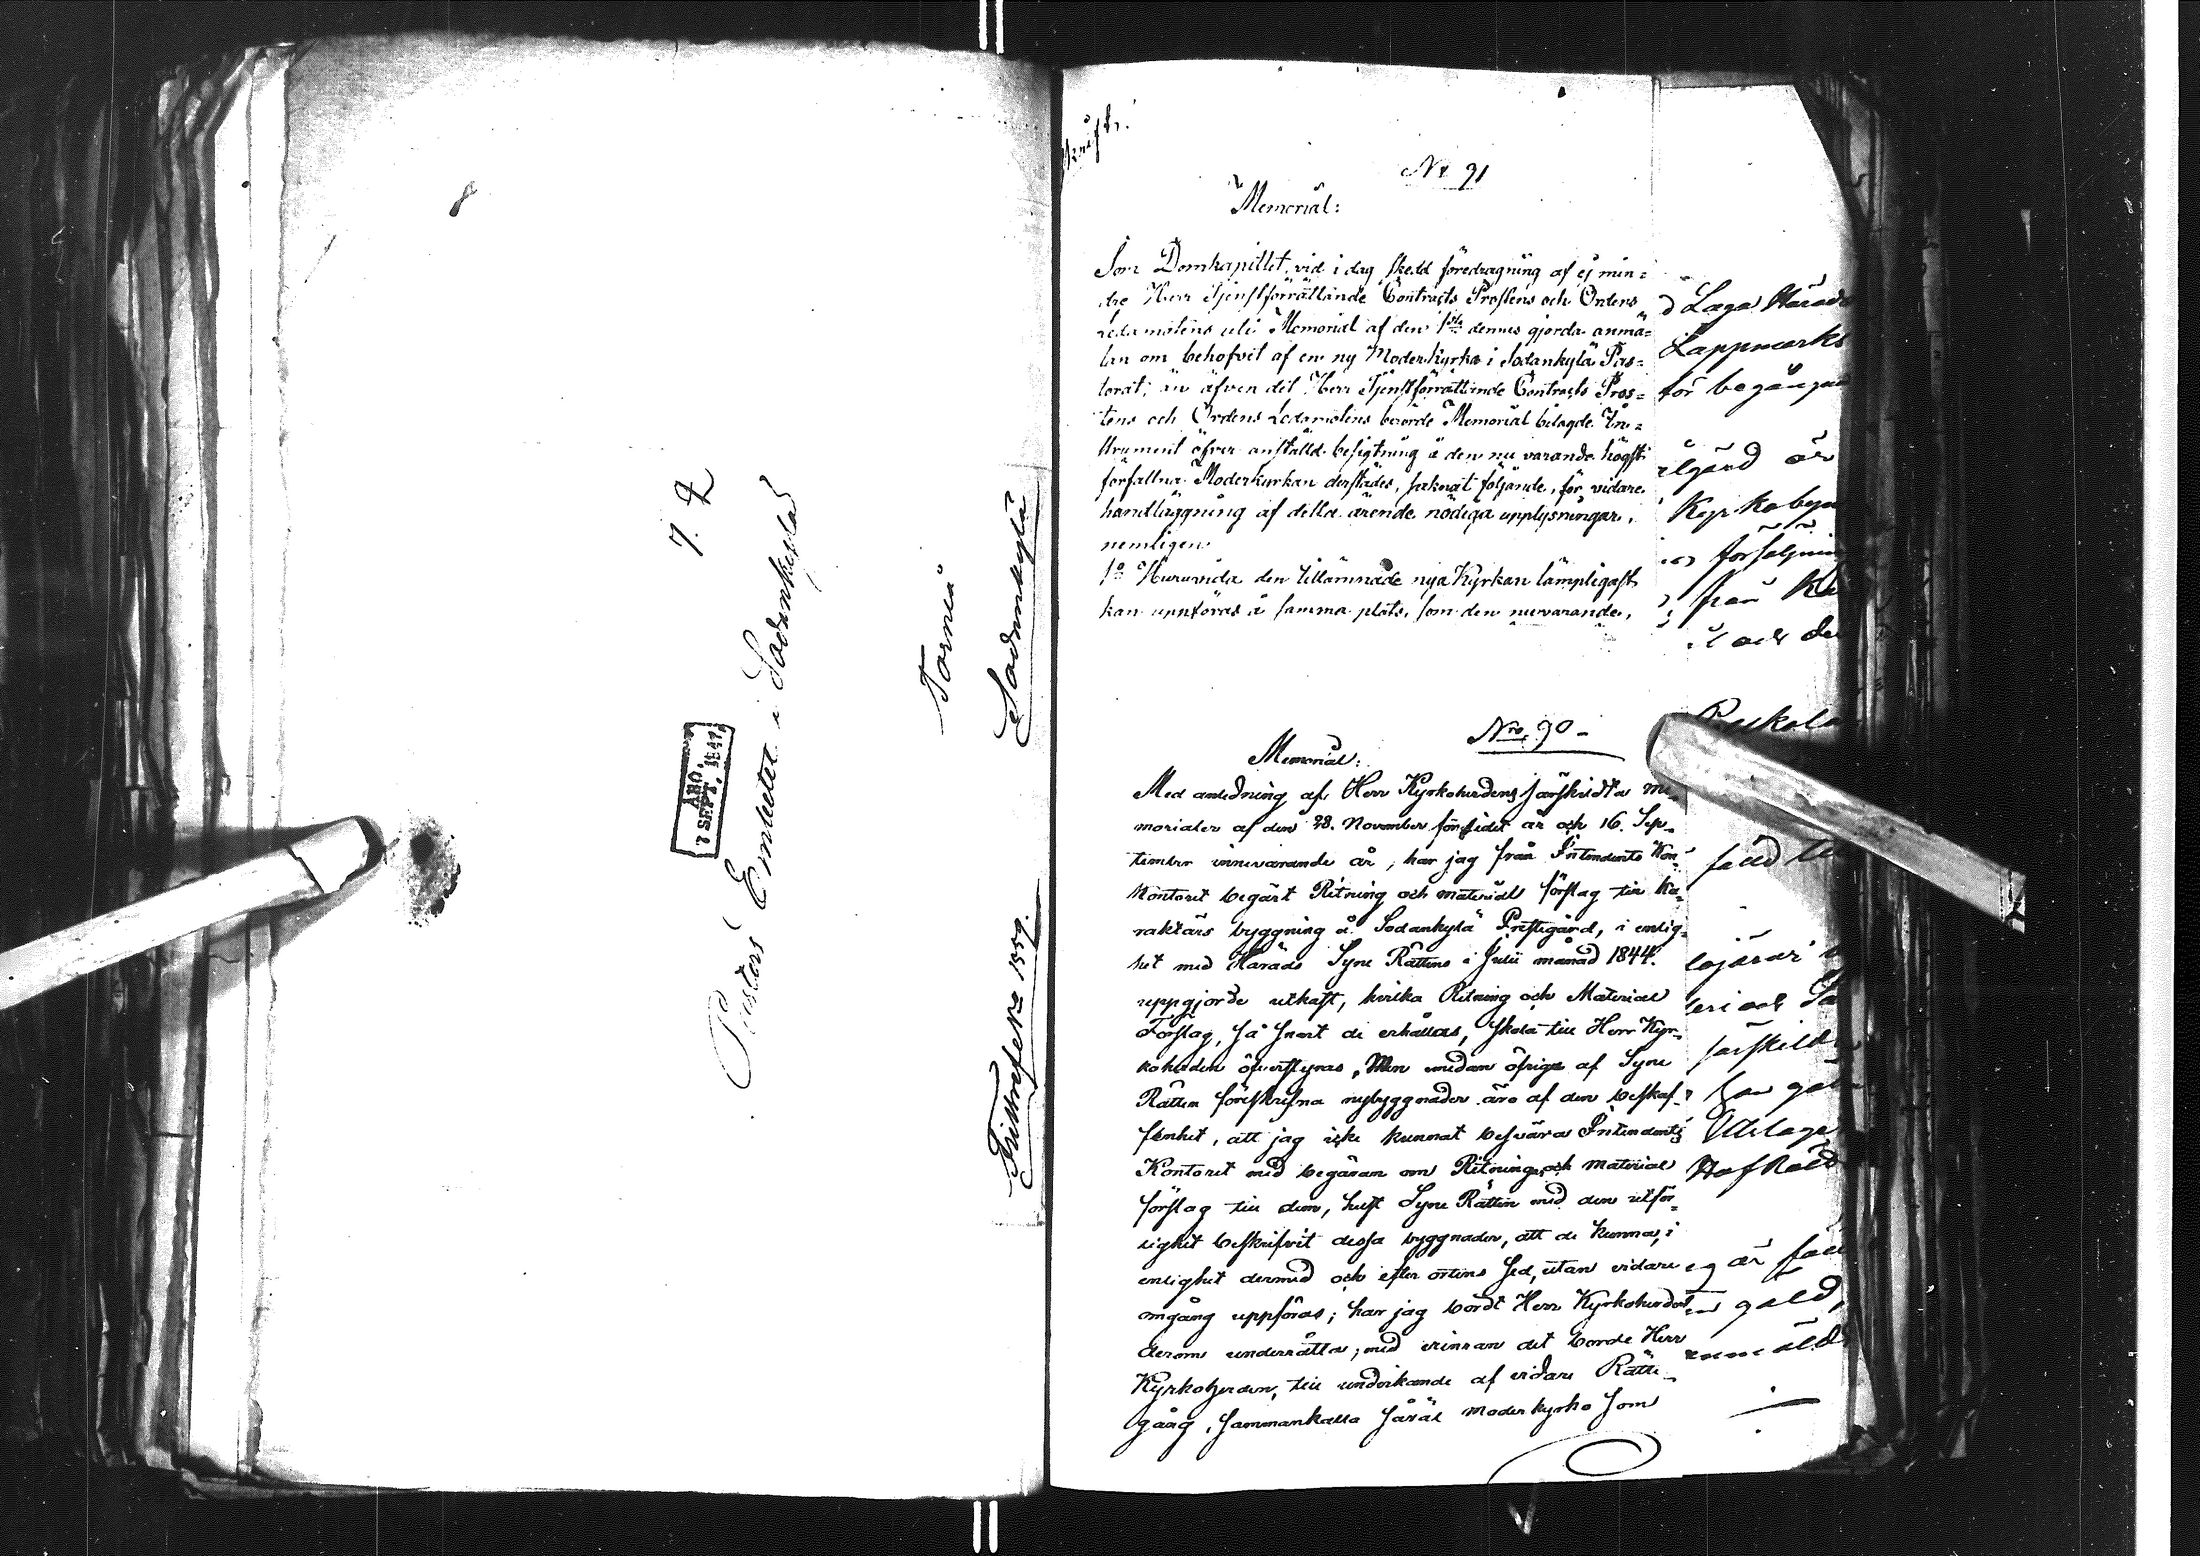 7.
ÅBO.
7 SEPT. 1847
Pastors Embetet i Sodankylä
Torneå
Sodankylä
1859.
No 91
Memorial:
Som Domkapitlet, vid i dag skedd föredragning af ej min=
dre Herr Tjenstförrättande Contracts Prostens och Ordens
Ledamotens uti Memorial af den 1sta dennes gjorda anmä=
lan om behofvet af en ny Moderkyrka i Sodankylä Pas=
torat; än äfven det Herr Tjenstförrättande Contracts Pros=
tens och Ordens Ledamotens berörde Memorial bilagde In=
strument öfver anställd besigtning å den nu varande högst
förfallna Moderkyrkan derstädes, saknat följande, för vidare
handläggning af detta ärende nödiga upplysningar,
nemligen
1o Huruvida den tillämnade nya Kyrkan lämpligast
kan uppföras å samma plats, som den nuvarande,
Laga Härads
Lappmarks
för begången
ålgärd är
Kyrkobygn
försäljning
från
och de
Nro 90
Memorial:
Med anledning af Herr Kyrkoherdens särskildta Me
morialer af den 28. November förflidet år och 16. Sep=
tember innevarande år, har jag från Intendents Kon
kontoret begärt Ritning och material förslag till Ka=
raktärs byggning å Sodankylä Prestegård, i enlig=
het med Härads Syne Rättens i Julii månad 1844.
uppgjorde utkast, hvilka Ritning och Material
Förslag, så snart de erhållas, skola till Herr Kyr=
koherden öfverstyras, Men medan öfriga af Syne
Rätten föreskrifna nybyggnader äro af den beskaf=
fenhet, att jag icke kunnat besvära Intendents
Kontoret med begäran om Ritning och material
förslag till dem, helst Syne Rätten med den utför=
lighet beskrifvit dessa byggnader, att de kunna, i
enlighet dermed och efter ortens sed, utan vidare
omgång uppföras; har jag bordt Herr Kyrkoherden
derom underrätta; med erinran det borde Herr
Kyrkoherden, till undvikande af vidare Rätte=
gång, sammankalla såväl moderkyrko som
särskild
Hof Räd
är